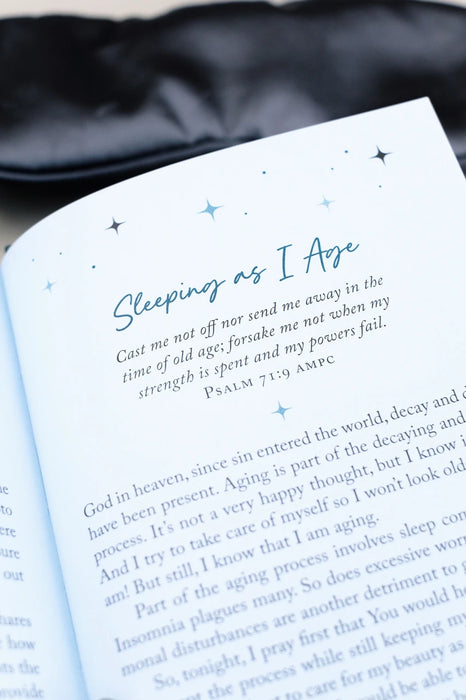 Sleeping as I Age
Cast me not off nor send me away in the
time of old age; forsake me not when my
strength is spent and my powers fail.
PSALM 71:9 AMPC
God in heaven, since sin entered the world, decay and
have been present. Aging is part of the decaying and
process. It's not a very happy thought, but I know
And I try to take care of myself so I won't look old
am! But still, I know that I am aging.
Part of the aging process involves sleep
Insomnia plagues many. So does excessive
monal disturbances are another detriment to
So, tonight, I pray first that You would
the process while still keeping
to care for my beauty as
be able to
to
out
how
the